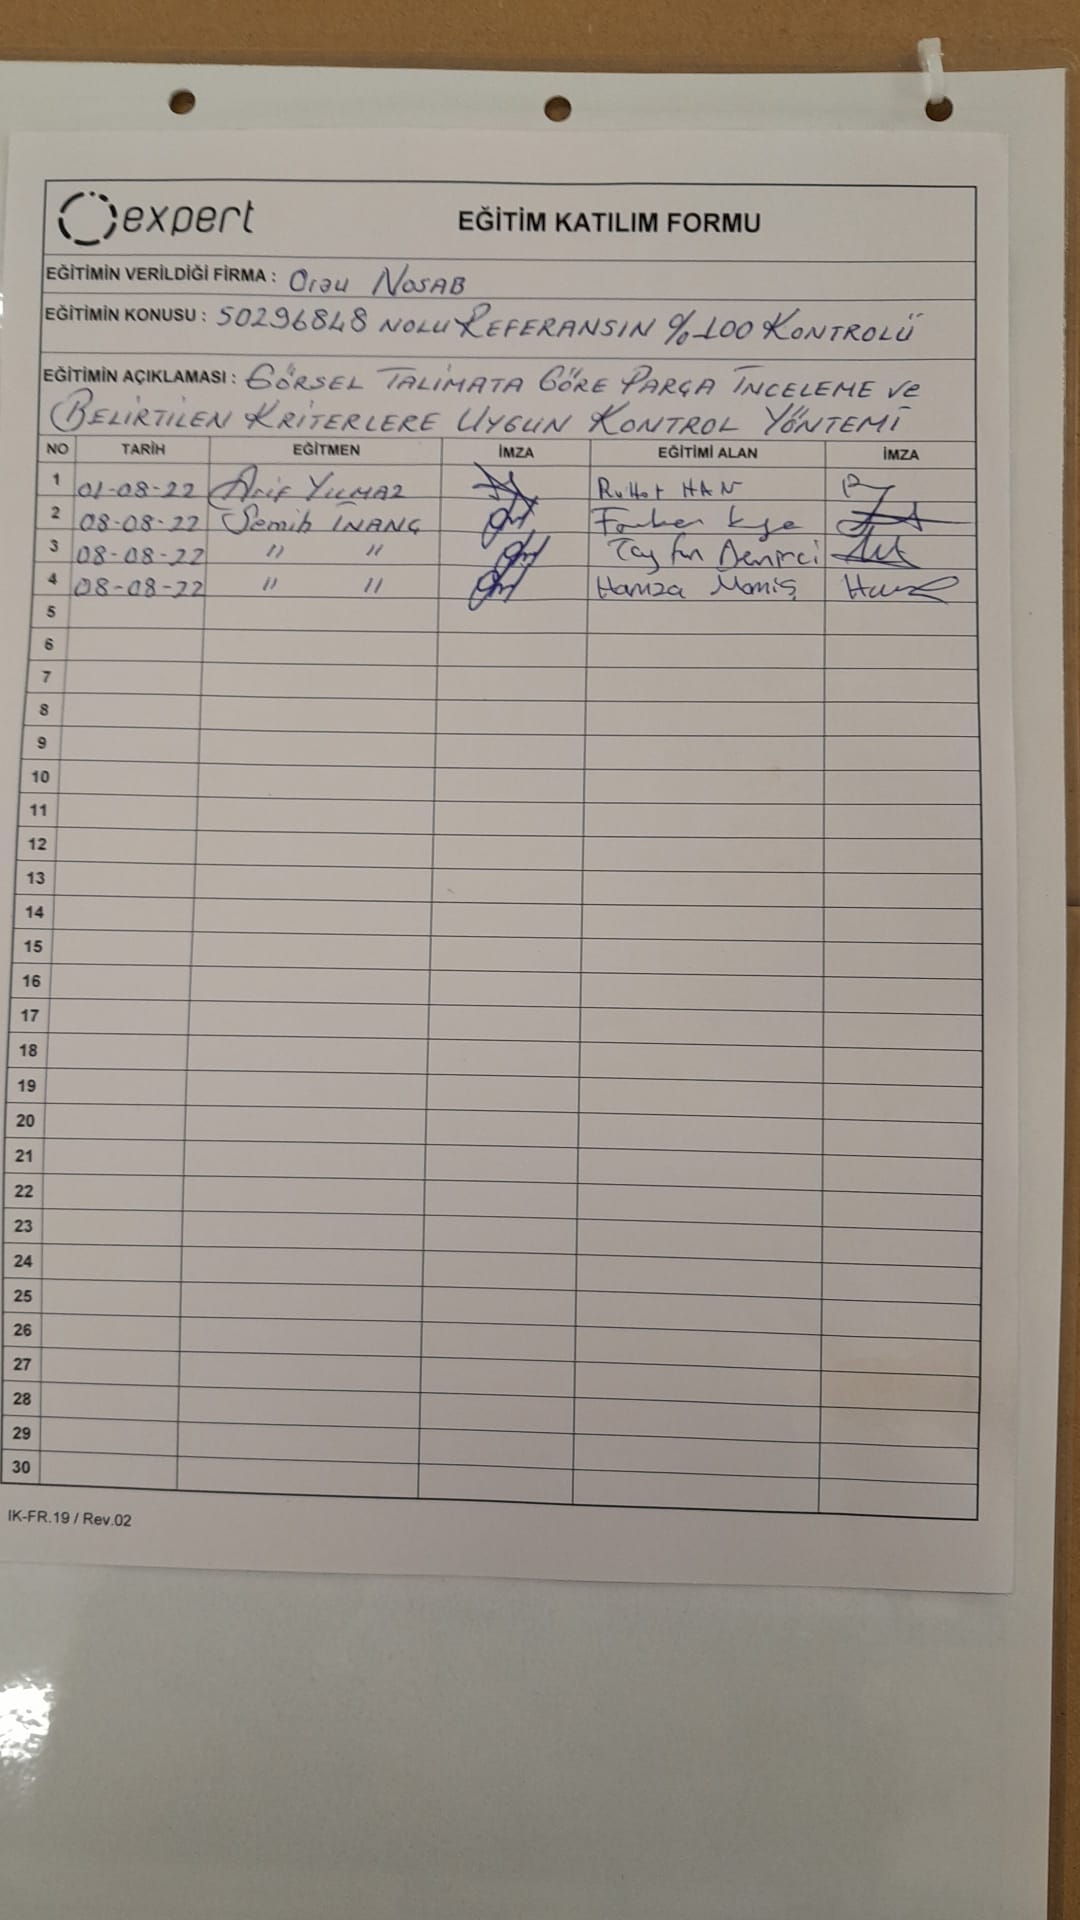 expert
EĞİTİM KATILIM FORMU
EĞİTİMİN VERİLDİĞİ FİRMA : Orau NOSAB
EĞİTİMİN KONUSU : 50296848 NOLU REFERANSIN %100 KONTROLÜ
EĞİTİMİN AÇIKLAMASI : GÖRSEL TALİMATA GÖRE PARÇA İNCELEME ve
BELİRTİLEN KRİTERLERE UYGUN KONTROL YÖNTEMİ
NO TARİH EĞİTMEN İMZA EĞİTİMİ ALAN İMZA
1 01-08-22 Arif YILMAZ HAN
2 08-08-22 Semih İNANÇ
3 08-08-22 " " Tayfun Demirci
4 08-08-22 " " Hamza Mamiş
5
6
7
8
9
10
11
12
13
14
15
16
17
18
19
20
21
22
23
24
25
26
27
28
29
30
IK-FR.19 / Rev.02